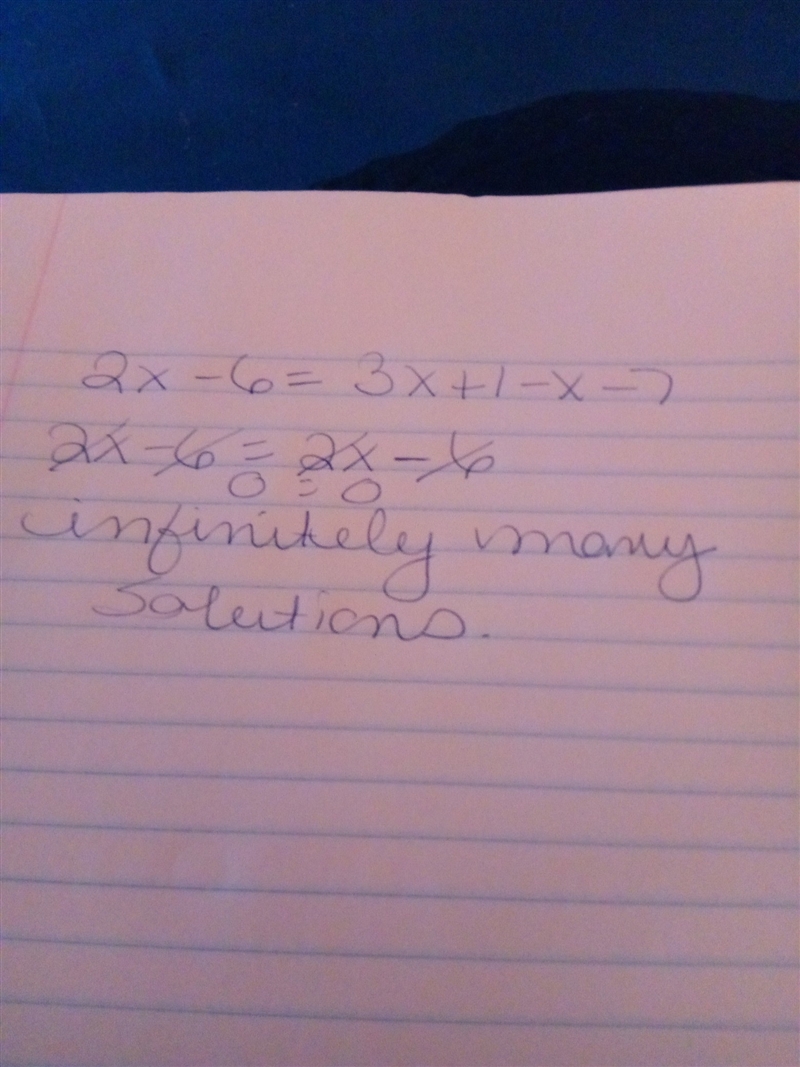 2x - 6 = 3x + 1 - x - 7
2x - 6 = 2x - 6
0 = 0
infinitely many
solutions.